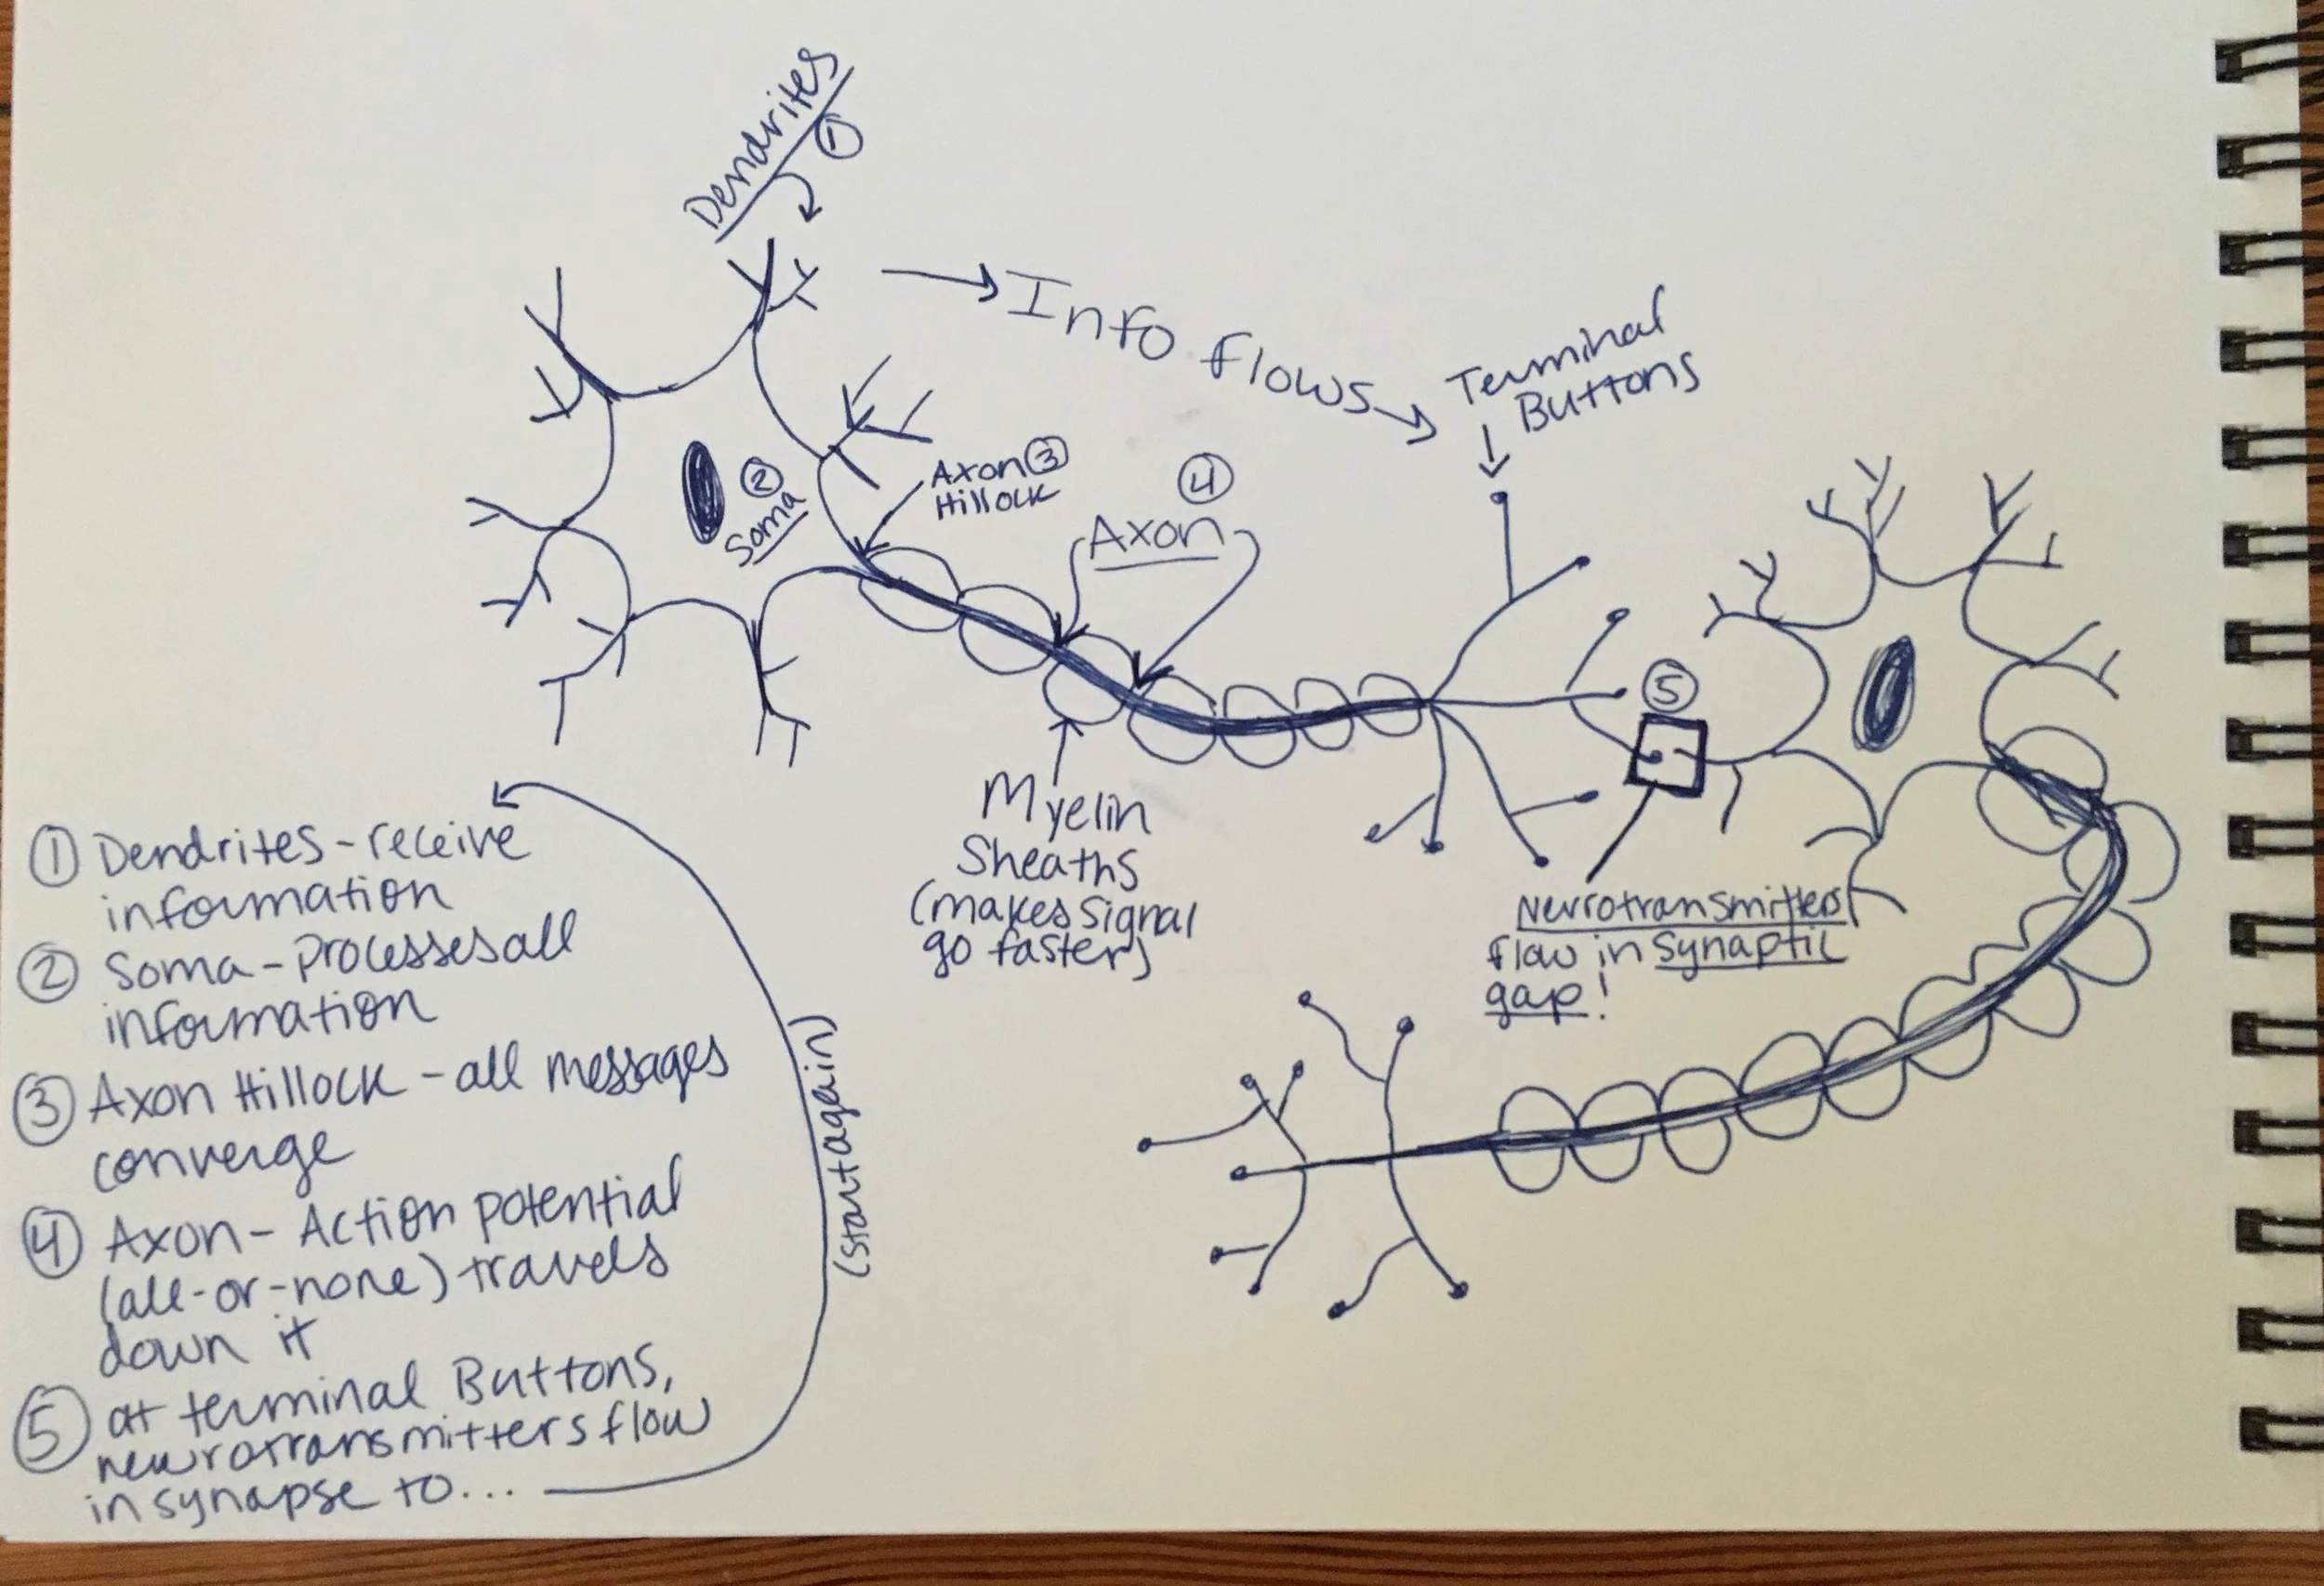 Dendrites
①
→ Info flows →
Terminal
Buttons
②
Soma
Axon ③
Hillock
④
Axon
⑤
Myelin
Sheaths
(makes signal
go faster)
Neurotransmitters
flow in synaptic
gap!
① Dendrites - receive
information
② Soma - processes all
information
③ Axon Hillock - all messages
converge
④ Axon - Action potential
(all-or-none) travels
down it
⑤ at terminal Buttons,
neurotransmitters flow
in synapse to...
(start again)